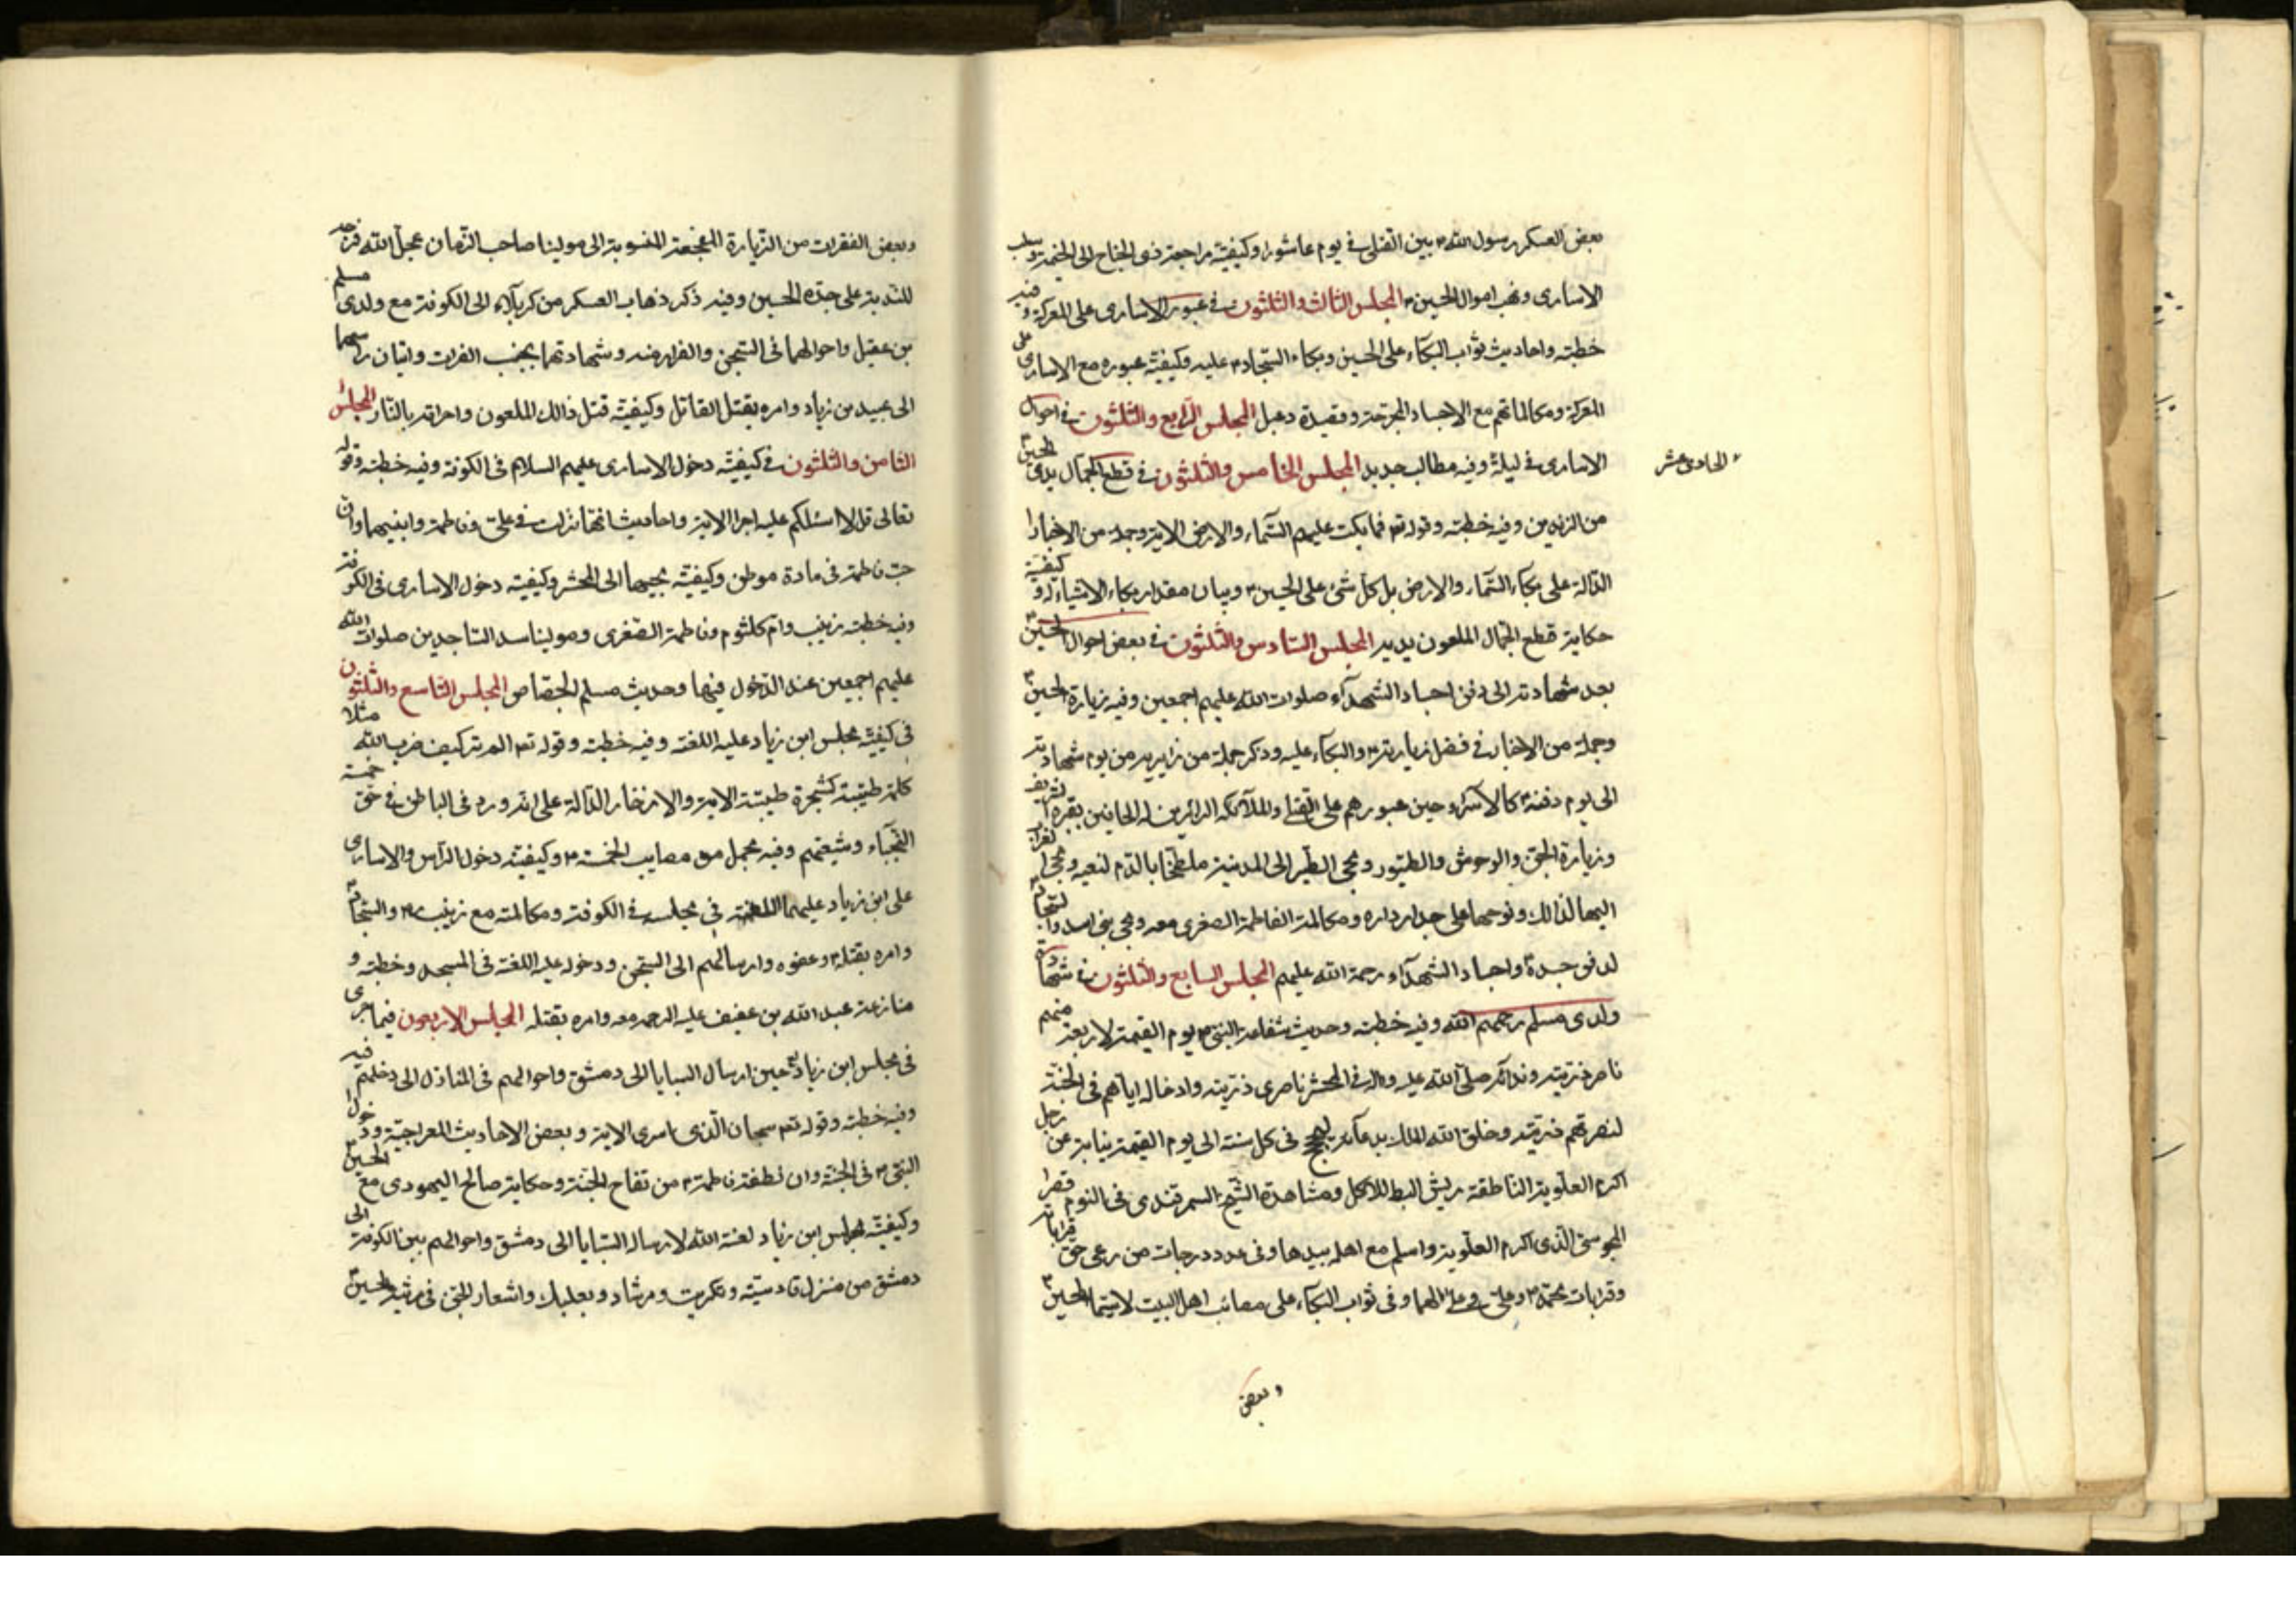 بعض العسكر رسول الله ص بين القتلى في يوم عاشورا وكيفية مراجعة ذى الجناح الى الخيمة وسلب
الاسارى ونهب اموال الحسين ع المجلس الثالث والثلثون في عبور الاسارى على المعركة وفيه
خطبته واحاديث ثواب البكاء على الحسين وبكاء السجاد ع عليه وكيفية عبوره مع الاسارى على
المعركة ومكالماتهم مع الاجساد المجرحة وقصيدة دعبل المجلس الرابع والثلثون في احوال
الاسارى في ليلة وفيه مطالب جديد المجلس الخامس والثلثون في قطع الجمال يدى الحسين ع
الحادى عشر
من الزندين وفيه خطبته وقوله تعم فما بكت عليهم السماء والارض الاية وجملة من الاخبار
الدالة على بكاء السماء والارض بل كل شئ على الحسين ع وبيان مقدار بكاء الاشياء له وكيفية
حكاية قطع الجمال الملعون يديه المجلس السادس والثلثون في بعض احوال الحسين ع
بعد شهادته الى دفن اجساد الشهداء صلوات الله عليهم اجمعين وفيه زيارة الحسين ع
وجملة من الاخبار في فضل زيارته ع والبكاء عليه وذكر جملة من زايريه من يوم شهادته
الى يوم دفنه ع كالاسراء حين عبورهم على القتلى والملائكة الزائرين له الحافين بقبره الشريف
وزيارة الجن والوحوش والطيور ومجئ الطير الى المدينة ملطخا بالدم لنعيه ومجئ الغراب
اليها لذلك ونوحها على جدار داره ومكالمة الفاطمة الصغرى معه ومجئ بنى اسد والسجاد ع
لدفن جسده واجساد الشهداء رحمة الله عليهم المجلس السابع والثلثون في شهادة
ولدى مسلم رحمهم الله وفيه خطبته وحديث شفاعة النبى ص يوم القيمة لاربعة منهم
ناصر ذريته ونداءه صلى الله عليه واله في المحشر ناصرى ذريته وادخاله اياهم في الجنة
لنصرتهم ذريته وخلق الله الملك بدعائه ليحج في كل سنة الى يوم القيمة نيابة عن رجل
اكرم العلوية الناطقة بريش البط للاكل ومشاهدة الشيخ السمرقندى في النوم قصر
المجوسى الذى اكرم العلوية واسلم مع اهله بيدها وفى عدد درجات من رعى حق قراباته
وقرابات محمد ص وعلى والهما وفى ثواب البكاء على مصائب اهل البيت لا سيما الحسين ع
وبعض
وبعض الفقرات من الزيارة المفجعة المنسوبة الى مولينا صاحب الزمان عجل الله فرجه
للندبة على جده الحسين وفيه ذكر ذهاب العسكر من كربلاء الى الكوفة مع ولدى مسلم
بن عقيل واحوالهما فى السجن والفرار منه وشهادتهما بجنب الفرات واتيان راسهما
الى عبيد بن زياد وامره بقتل القاتل وكيفية قتل ذالك الملعون واحراقه بالنار المجلس
الثامن والثلثون في كيفية دخول الاسارى عليهم السلام فى الكوفة وفيه خطبته وقوله
تعالى قل لا اسئلكم عليه اجرا الاية واحاديث انها نزلت في على وفاطمة وابنيهما وان
حب فاطمة فى مادة موطن وكيفية مجيها الى المحشر وكيفية دخول الاسارى فى الكوفة
وفيه خطبة زينب وام كلثوم وفاطمة الصغرى ومولينا سيد الساجدين صلوات الله
عليهم اجمعين عند الدخول فيها وحديث مسلم الجصاص المجلس التاسع والثلثون
فى كيفية مجلس ابن زياد عليه اللعنة وفيه خطبته وقوله تعم الم تر كيف ضرب الله مثلا
كلمة طيبة كشجرة طيبة الاية والاخبار الدالة على انه ورد فى الباطن في حق خمسة
النجباء وشيعتهم وفيه مجمل من مصايب الخمسة ع وكيفية دخول الراس والاسارى
على ابن زياد عليهما اللعنة فى مجلسه في الكوفة ومكالمته مع زينب ع والسجاد ع
وامره بقتله ع وعفوه وارسالهم الى السجن ودخوله عليه اللعنة فى المسجد وخطبته و
منازعة عبد الله بن عفيف عليه الرحمة معه وامره بقتله المجلس الاربعون فيما جرى
فى مجلس ابن زياد حين ارسال السبايا الى دمشق واحوالهم فى المنازل الى دخلهم فيه
وفيه خطبته وقوله تعم سبحان الذى اسرى الاية وبعض الاحاديث المعراجية ودخول
النبى ص فى الجنة وان نطفة فاطمة ع من تفاح الجنة وحكاية صالح اليهودى مع الحسين ع
وكيفية مجلس ابن زياد لعنة الله لارسال السبايا الى دمشق واحوالهم بين الكوفة الى
دمشق من منزل قادسية وتكريت ومرشاد وبعلبك واشعار الجن فى مرثية الحسين ع